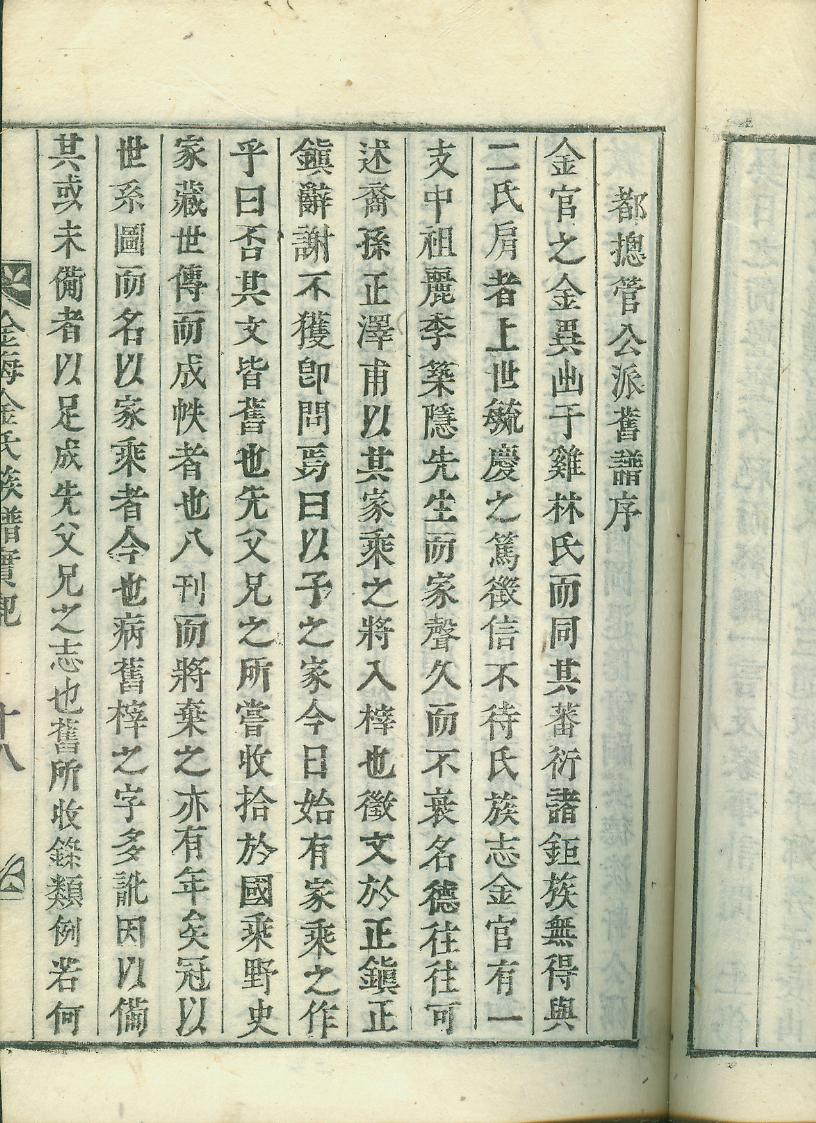 都摠管公派舊譜序
金官之金異出于雞林氏而同其蕃衍諸鉅族無得與
二氏肩者上世毓慶之篤徵信不待氏族志金官有一
支中祖麗季築隱先生而家聲久而不衰名德往往可
述裔孫正澤甫以其家乘之將入梓也徵文於正鎭正
鎭辭謝不獲卽問焉曰以予之家今日始有家乘之作
乎曰否其文皆舊也先父兄之所嘗收拾於國乘野史
家藏世傳而成帙者也入刊而將棄之亦有年矣冠以
世系圖而名以家乘者今也病舊梓之字多訛因以備
其或未備者以足成先父兄之志也舊所收錄類例若何
金海金氏族譜實記 十八